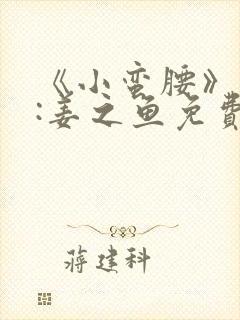 《小蛮腰》
:姜之鱼免费
蒋建科